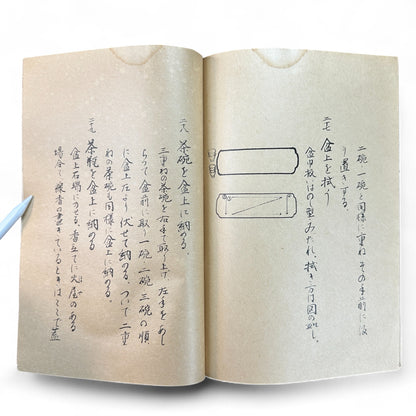 二碗 一碗と同様に重ね その手前に汲
り置きする。
二七 盆上を拭う
盆巾扱いはのの型みだれ、拭き方は図の如し。
二八 茶碗を盆上に納める。
三重ねの茶碗を右手で取り上げ 左手をあし
らって 盆前に取り 一碗 二碗 三碗の順
に盆上左より伏せて納める。ついで 二重
ねの茶碗も同様に盆上に納める。
二九 茶瓶を盆上に納める
盆上右場にのせる。香立てに火屋のある
場合で 線香の書きているときはここで蓋